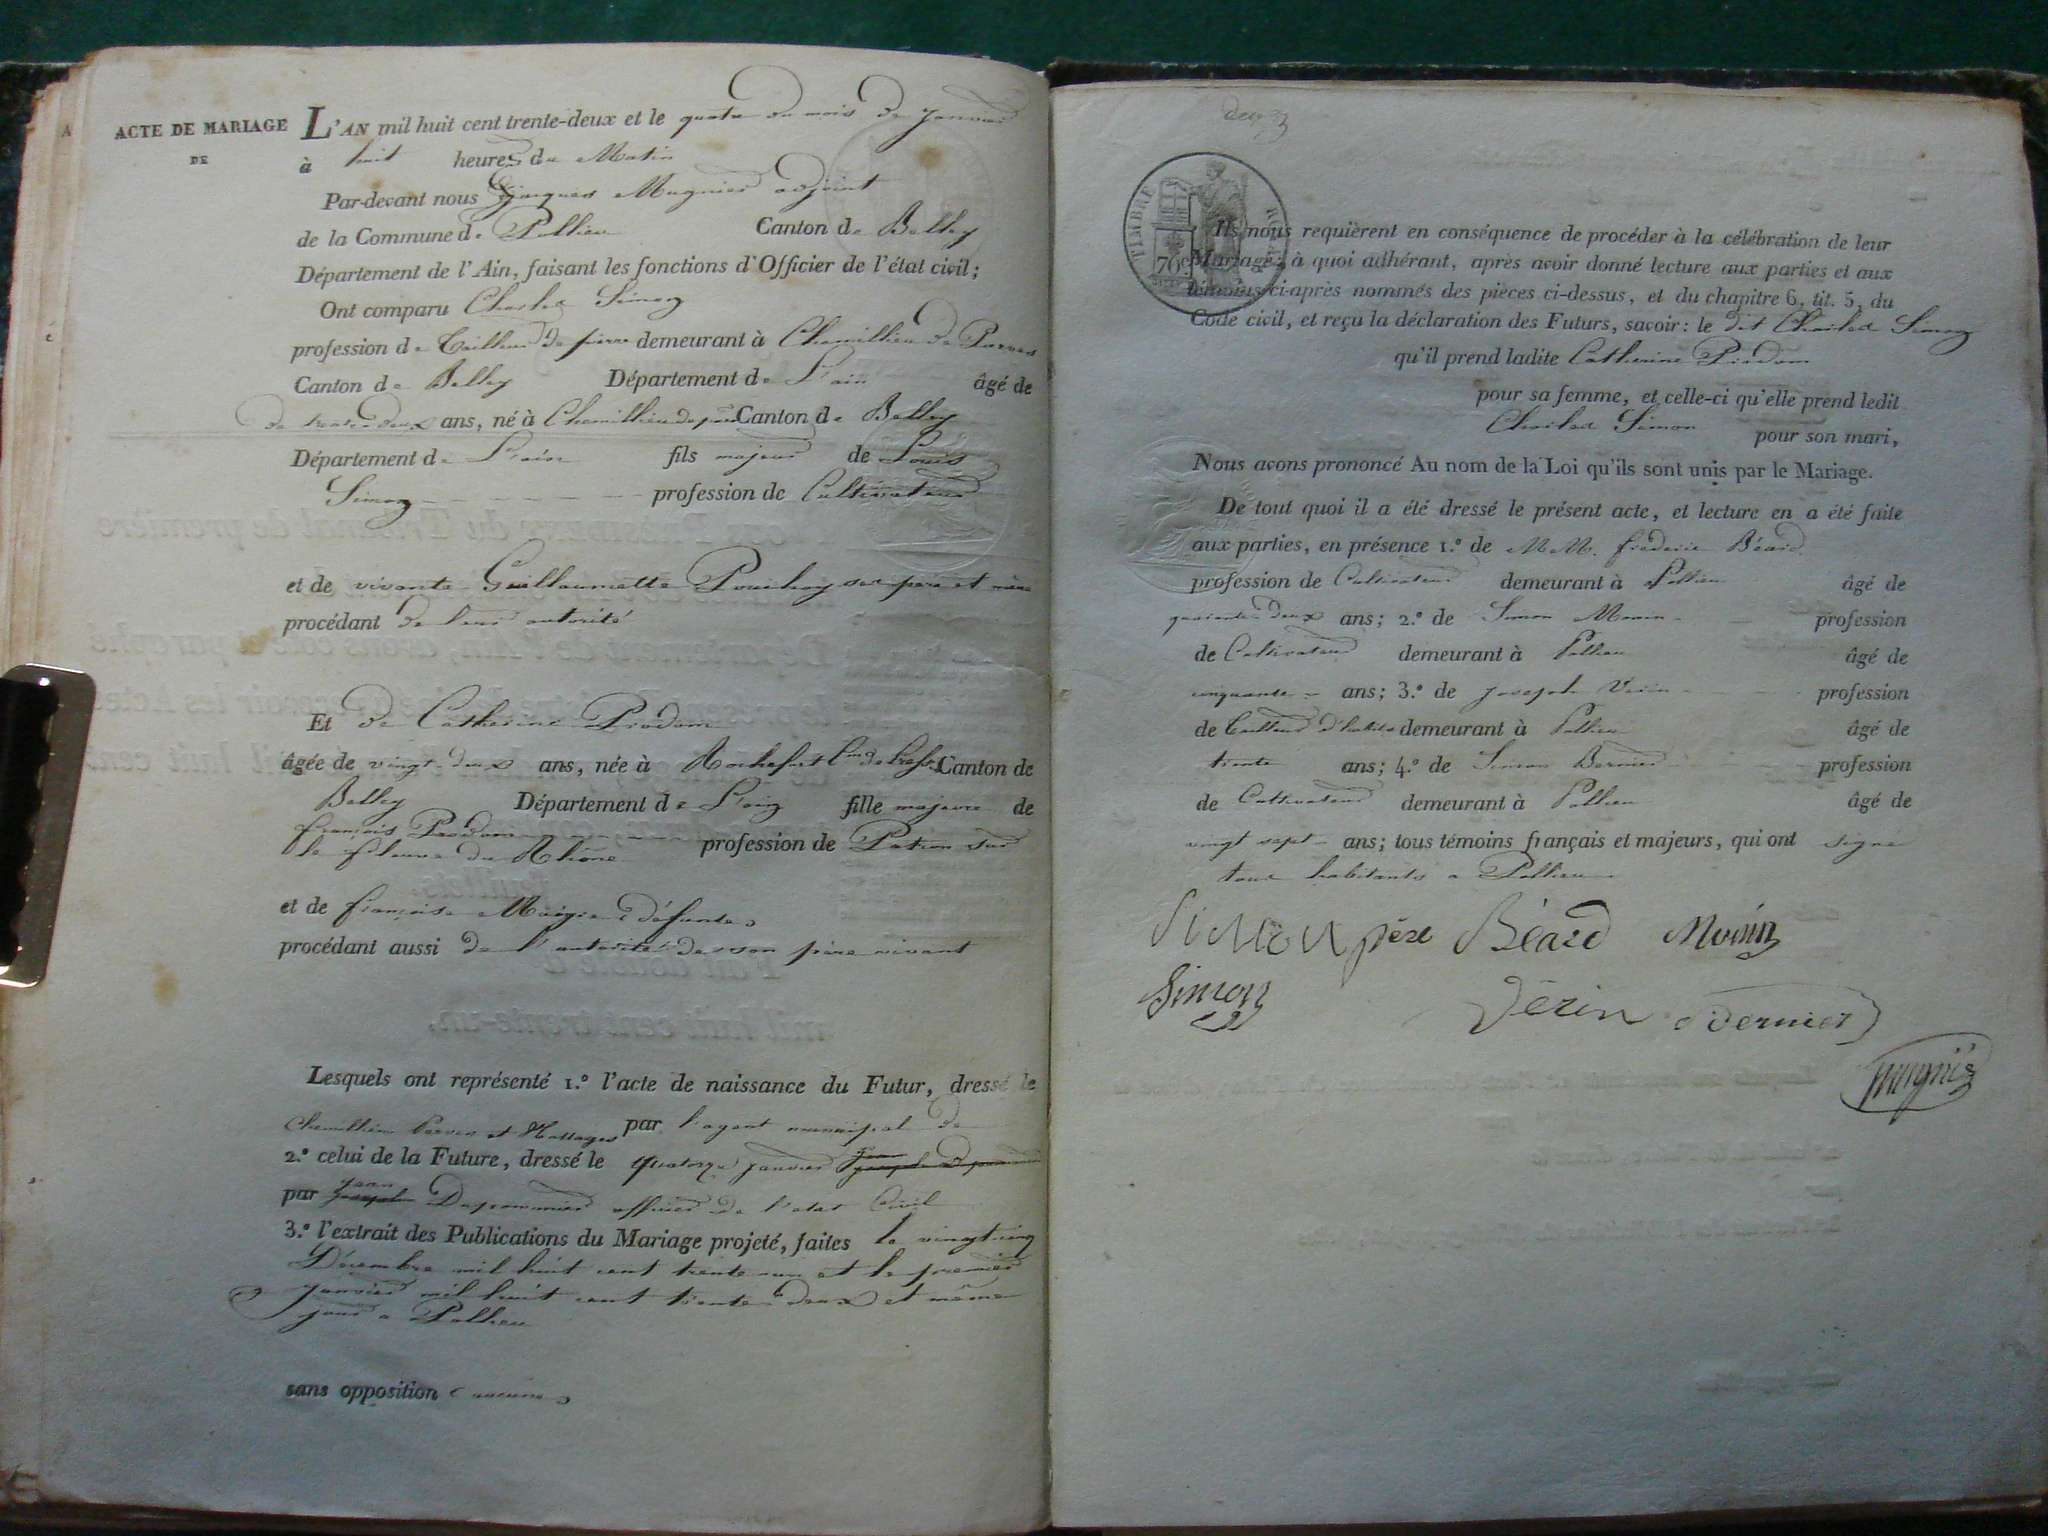 ACTE DE MARIAGE
DE
L'AN mil huit cent trente-deux et le quatre du mois de janvier
à huit heures du Matin
Par-devant nous Jacques Mugnier adjoint
de la Commune de Pollieu Canton de Belley
Département de l'Ain, faisant les fonctions d'Officier de l'état civil;
Ont comparu Charles Simon
profession de Tailleur de pierre demeurant à Chemillieu de Parves
Canton de Belley Département de L'ain âgé de
de trente-deux ans, né à Chemillieu de Canton de Belley
Département de L'ain fils majeur de Louis
Simon profession de Cultivateur
et de vivante Guillaumette ses père et mère
procédant de leur autorité
Et de Catherine Prodon
âgée de vingt-deux ans, née à Rochefort Canton de
Belley Département de L'ain fille majeure de
françois Prodon profession de Patron sur
le fleuve du Rhône
et de françoise défunte
procédant aussi de l'autorité de son père vivant
Lesquels ont représenté 1.º l'acte de naissance du Futur, dressé le
par l'agent municipal de
Chemillieu Parves et Nattages
2.º celui de la Future, dressé le quatorze janvier
par jean officier de l'état Civil
3.º l'extrait des Publications du Mariage projeté, faites le vingt cinq
Décembre mil huit cent trente un et le premier
janvier mil huit cent trente deux et même
jour a Pollieu
sans opposition aucune
deux
TIMBRE ROYAL
70c
Ils nous requièrent en conséquence de procéder à la célébration de leur
Mariage; à quoi adhérant, après avoir donné lecture aux parties et aux
témoins ci-après nommés des pièces ci-dessus, et du chapitre 6, tit. 5, du
Code civil, et reçu la déclaration des Futurs, savoir: le dit Charles Simon
qu'il prend ladite Catherine Prodon
pour sa femme, et celle-ci qu'elle prend ledit
Charles Simon pour son mari,
Nous avons prononcé Au nom de la Loi qu'ils sont unis par le Mariage.
De tout quoi il a été dressé le présent acte, et lecture en a été faite
aux parties, en présence 1.º de M.M. frederic Béard
profession de Cultivateur demeurant à Pollieu âgé de
quarante-deux ans; 2.º de Simon Monin profession
de Cultivateur demeurant à Pollieu âgé de
cinquante ans; 3.º de joseph Vérin profession
de Tailleur d'habits demeurant à Pollieu âgé de
trente ans; 4.º de Simon Bernier profession
de Cultivateur demeurant à Pollieu âgé de
vingt sept ans; tous témoins français et majeurs, qui ont signé
tous habitants a Pollieu
Simon père Béard Monin
Simon Vérin Bernier
Mugnier